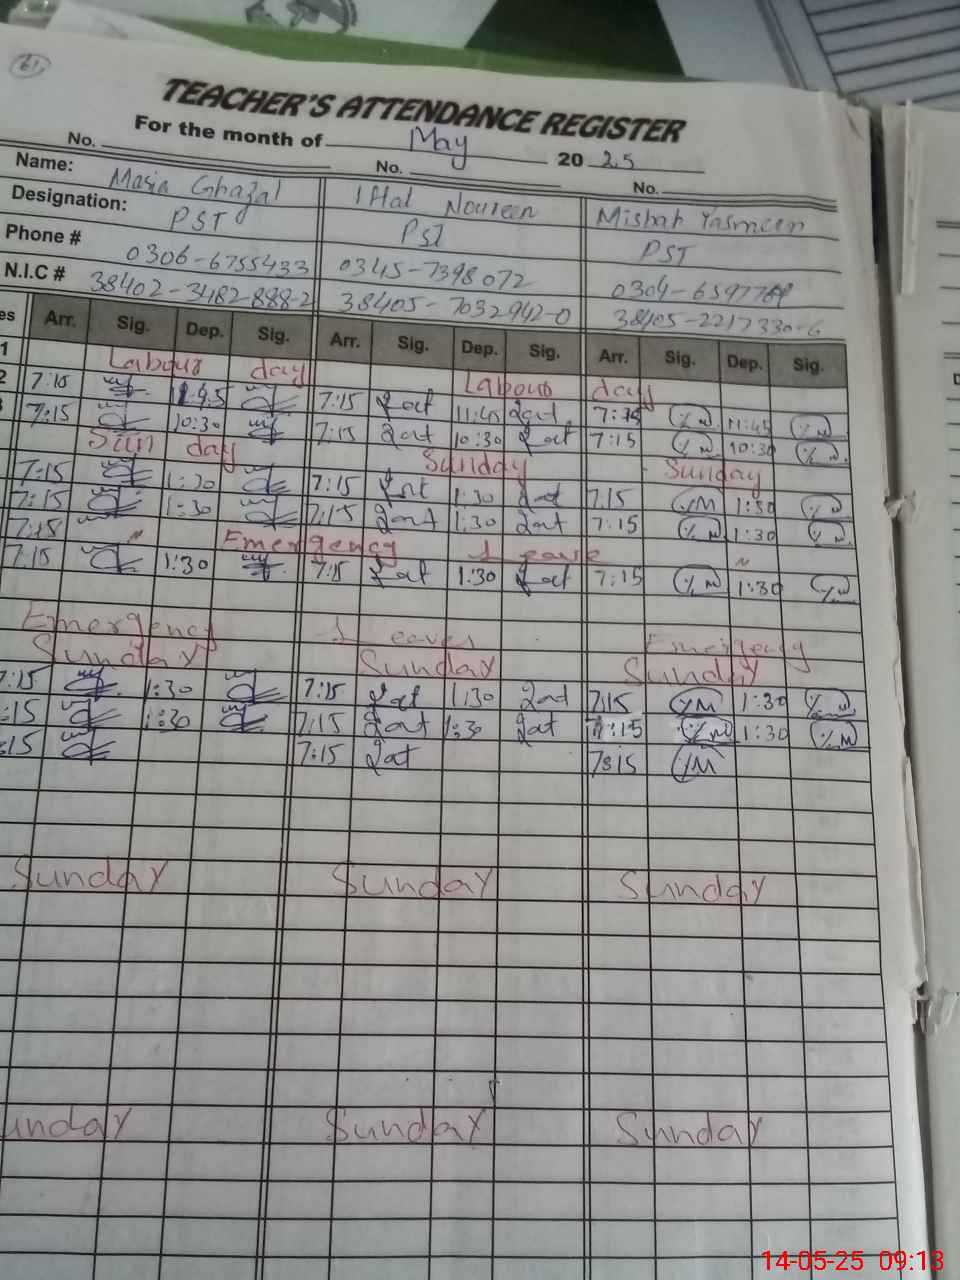 61
TEACHER'S ATTENDANCE REGISTER
For the month of May 20 25
No. No. No.
Name: Masia Ghazal Iffat Noureen Misbah Yasmeen
Designation: PST PST PST
Phone # 0306-6755433 0345-7398072 0304-6597764
N.I.C # 38402-3482888-2 38405-7032942-0 38405-2217330-6
es Arr. Sig. Dep. Sig. Arr. Sig. Dep. Sig. Arr. Sig. Dep. Sig.
1 Labour day Labour day
2 7:15 7:15 11:45 11:45
7:15 10:30 7:15 10:30 7:15 10:30
Sun day Sunday Sunday
7:15 1:30 7:15 1:30 7:15 YM 1:30
7:15 1:30 7:15 1:30 7:15 1:30
7:15 Emergency Leave
7:15 1:30 7:15 1:30 7:15 1:30
Emergency Leaves Emergency
Sunday Sunday Sunday
7:15 1:30 7:15 1:30 7:15 YM 1:30
:15 1:30 7:15 1:30 7:15 1:30
:15 7:15 7:15 YM
Sunday Sunday Sunday
unday Sunday Sunday
14-05-25 09:13